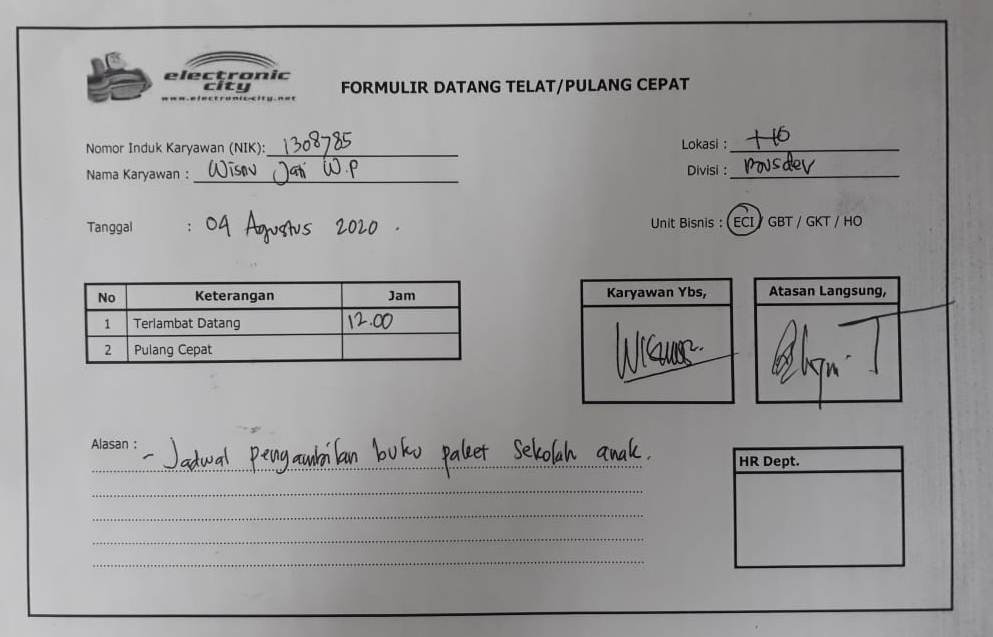 electronic
city
www.electronic-city.net
FORMULIR DATANG TELAT/PULANG CEPAT
Nomor Induk Karyawan (NIK): 1308785
Lokasi : HO
Nama Karyawan : Wisnu Jati W.P
Divisi :
Tanggal : 04 Agustus 2020 .
Unit Bisnis : ECI / GBT / GKT / HO
No Keterangan Jam
1 Terlambat Datang 12.00
2 Pulang Cepat
Karyawan Ybs,
Atasan Langsung,
Alasan : - Jadwal pengambilan buku paket sekolah anak.
HR Dept.